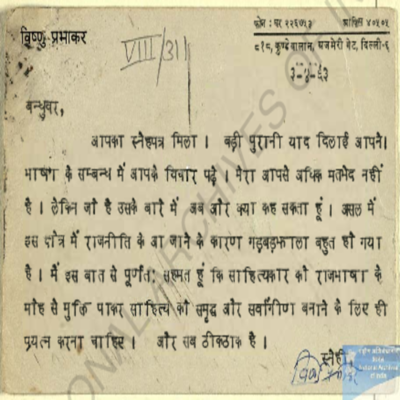 विष्णु प्रभाकर
फोन : घर २२६७५३
आफिस ४०५०५
८१८, कुण्डेवालान, अजमेरी गेट, दिल्ली-६
VIII/31
३-५-६३
बन्धुवर,
आपका स्नेहपत्र मिला । बड़ी पुरानी याद दिलाई आपने।
भाषा के सम्बन्ध में आपके विचार पढ़े । मेरा आपसे अधिक मतभेद नहीं
है । लेकिन जो है उसके बारे में अब और क्या कह सकता हूं । असल में
इस क्षेत्र में राजनीति के आ जाने के कारण गड़बड़झाला बहुत हो गया
है । मैं इस बात से पूर्णत: सहमत हूं कि साहित्यकार को राजभाषा के
मोह से मुक्ति पाकर साहित्य को समृद्ध और सर्वांगीण बनाने के लिए ही
प्रयत्न करना चाहिए । और सब ठीकठाक है ।
स्नेही,